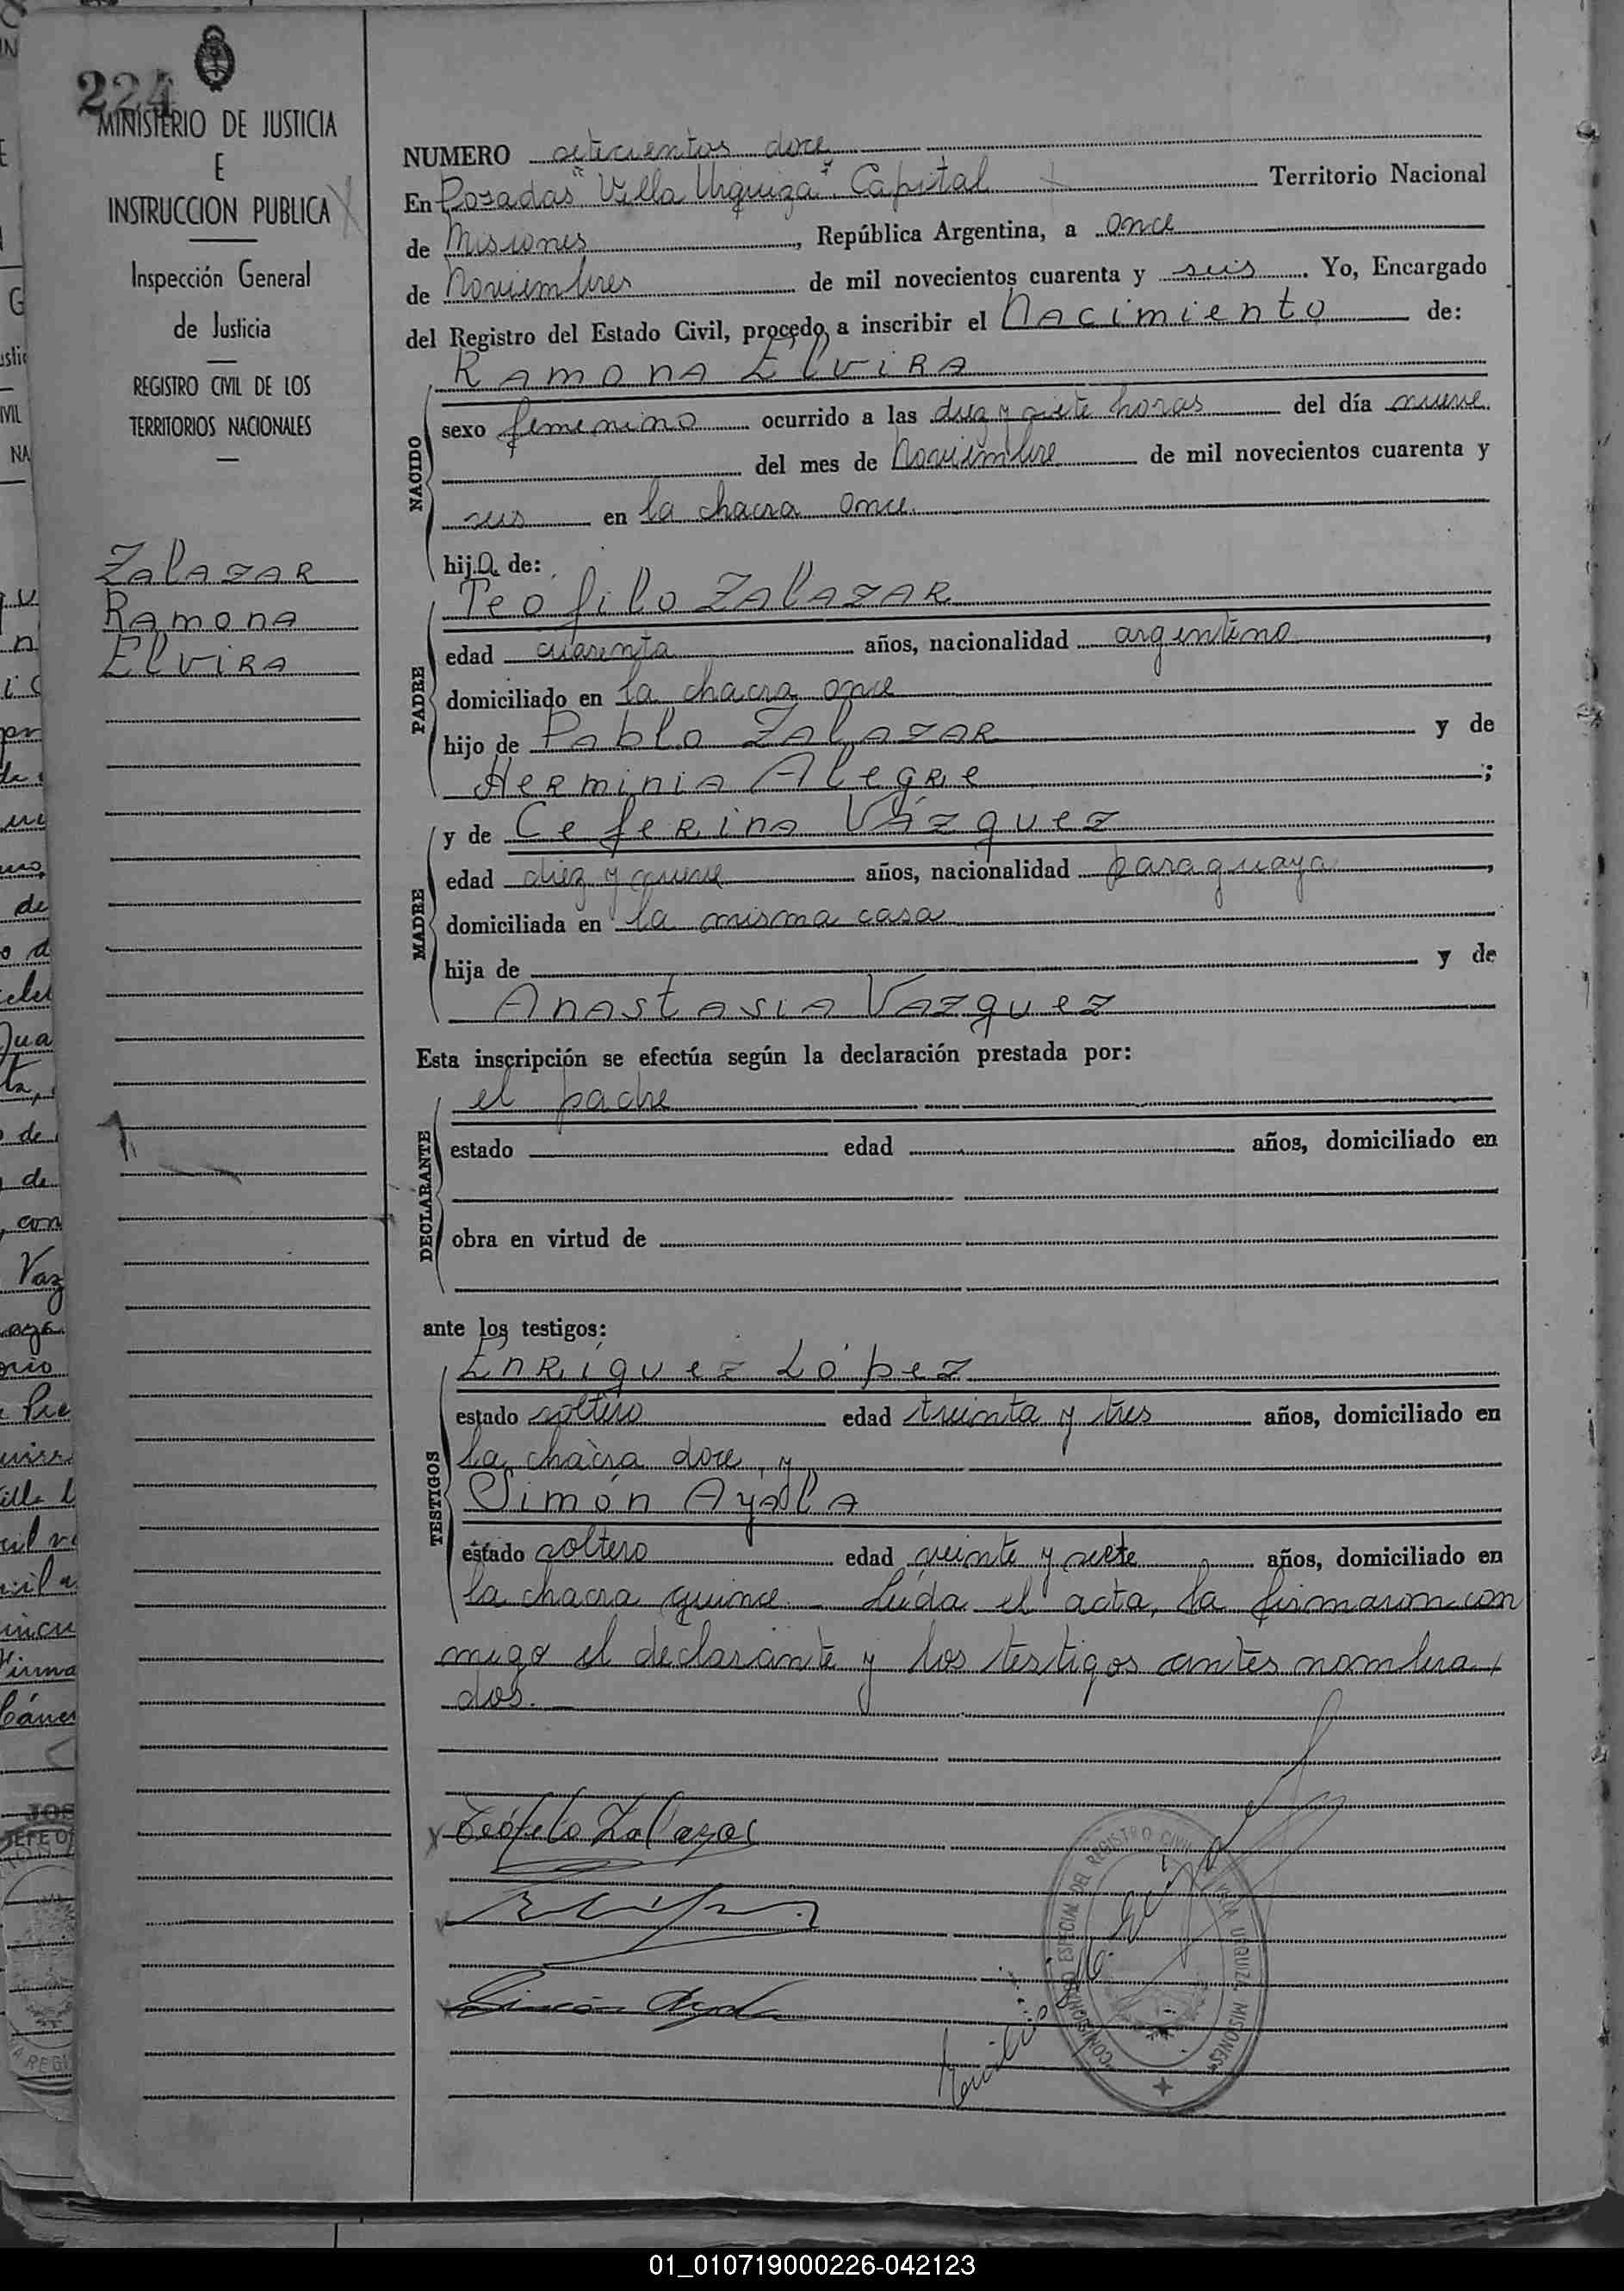 224
MINISTERIO DE JUSTICIA
E
INSTRUCCION PUBLICA
Inspección General
de Justicia
REGISTRO CIVIL DE LOS
TERRITORIOS NACIONALES
ZALAZAR
RAMONA
ELVIRA
NUMERO setecientos doce
En Posadas "Villa Urquiza". Capital Territorio Nacional
de Misiones, República Argentina, a once
de Noviembres de mil novecientos cuarenta y seis. Yo, Encargado
del Registro del Estado Civil, procedo a inscribir el Nacimiento de:
RAMONA ELVIRA
NACIDO
sexo femenino ocurrido a las diez y siete horas del día nueve
del mes de Noviembre de mil novecientos cuarenta y
seis en la chacra once
hija de:
PADRE
Teofilo ZALAZAR
edad cuarenta años, nacionalidad argentino,
domiciliado en la chacra once
hijo de Pablo ZALAZAR y de
Herminia Alegre;
MADRE
y de Ceferina Vázquez
edad diez y nueve años, nacionalidad paraguaya,
domiciliada en la misma casa
hija de y de
Anastasia Vazquez
Esta inscripción se efectúa según la declaración prestada por:
DECLARANTE
el padre
estado edad años, domiciliado en
obra en virtud de
ante los testigos:
TESTIGOS
Enríquez López
estado soltero edad treinta y tres años, domiciliado en
la chacra doce, y
Simón Ayala
estado soltero edad veinte y siete años, domiciliado en
la chacra quince. - Leída el acta, la firmaron con
migo el declarante y los testigos antes nombra
dos. -
Teófilo Zalazar
Simón Ayala
COMISIONADO ESPECIAL DEL REGISTRO CIVIL VILLA URQUIZA MISIONES
01_010719000226-042123